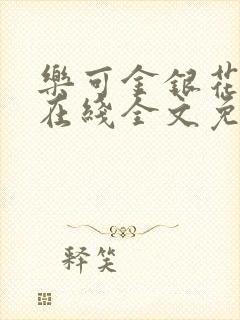 樂可金銀花
在綫全文免
释笑